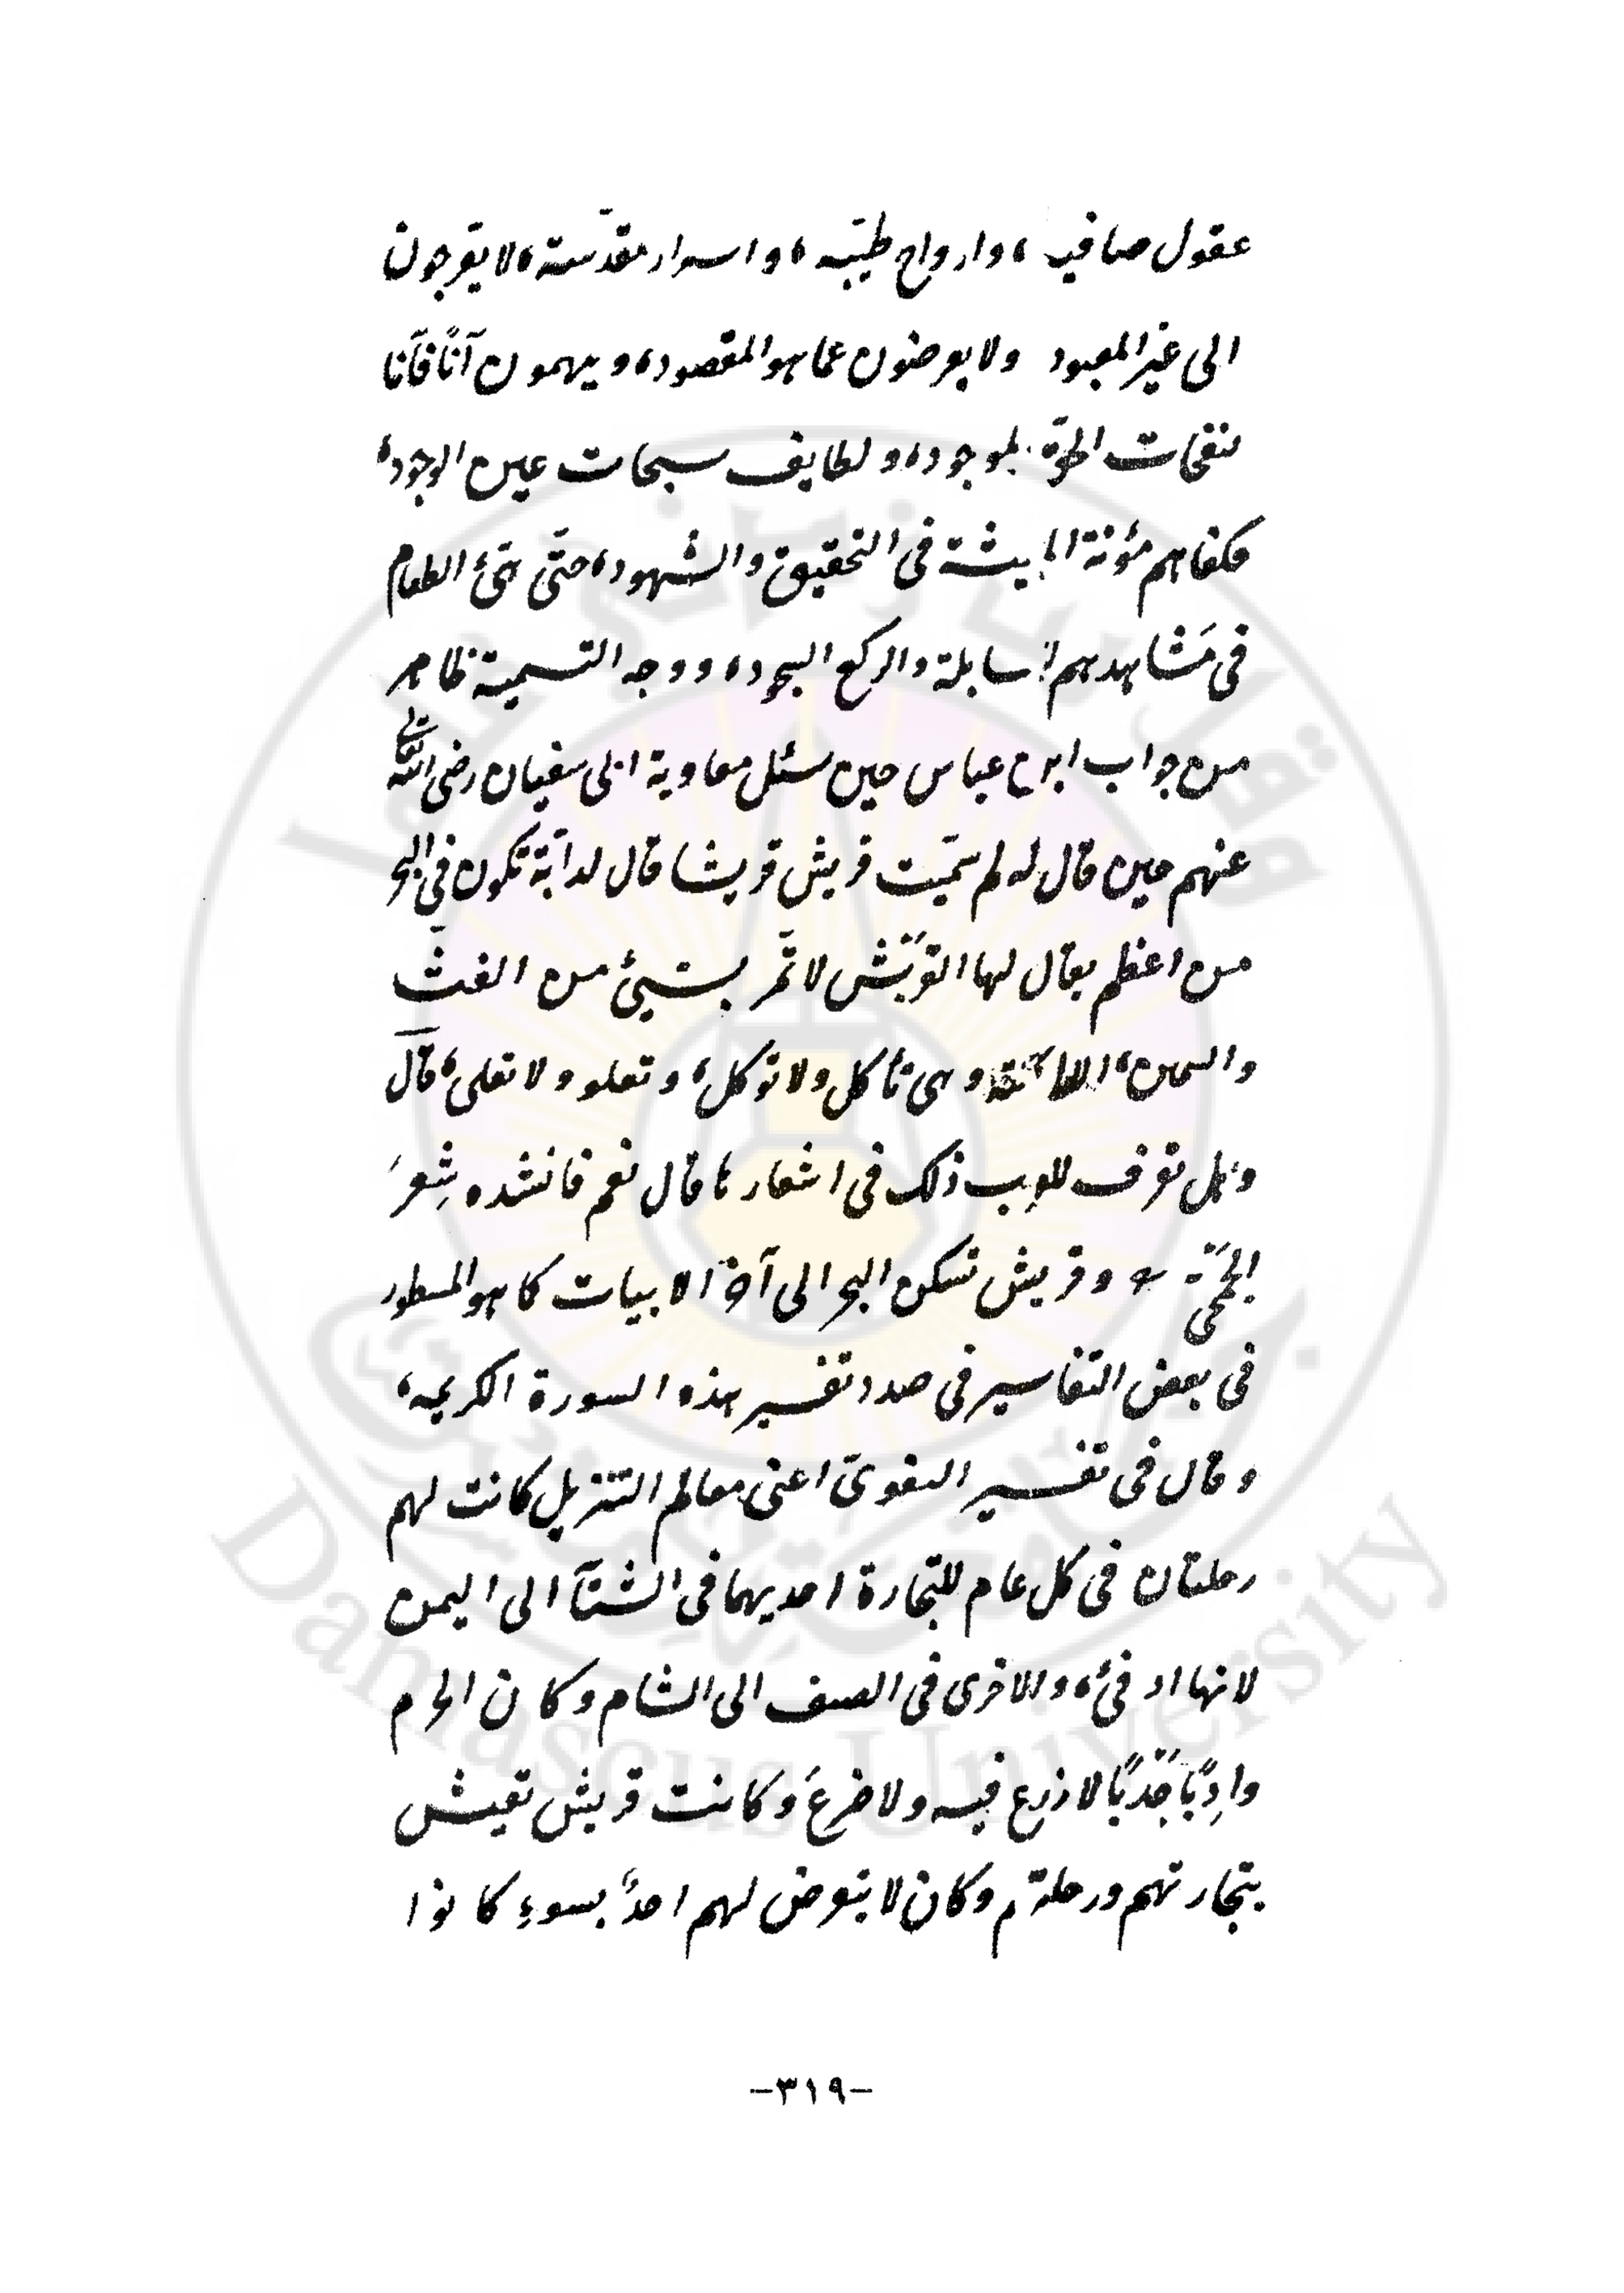 عقول صافيه ، وارواح طيّبه ، و اسرار مقدّسة ، لا يتوجهون
الى غير المعبود ولا يعرضون عما هو المقصود ، و يهمون آنًا فآنا
نفحات الموجود ، و لطايف سبحات عين الوجود ،
فكفاهم مؤنة فى التحقيق و الشهود ، حتّى الطعام
فى مَشاهدهم والركع السجود ، و وجه التسمية ظاهر
من جواب ابن عباس حين سئل معاوية ابى سفيان رضى الله تعالى
عنهم حين قال له لم سمّيت قريش قريشا قال لدابّة تكون فى البحر
من اعظم يقال لها القريش لا تمّر بشيئ من الغثّ
والسمين ، الا و هى تأكل ولا توكل ، و تعلو ولا تعلى ، قال
وهل تعرف للعرب ذلك فى اشعارها قال نعم فانشده شِعرَ
الجمحّى و قريش تسكن البحر الى آخر الابيات كما هو المسطور
فى بعض التفاسير فى صدد تفسير هذه السورة الكريمه ،
و قال فى تفسير البغوىّ اعنى معالم التنزيل كانت لهم
رحلتان فى كل عام للتجارة احديهما فى الشتآ الى اليمن
لانها ادفئ ، و الاخرى فى الصيف الى الشام و كان الحرم
وادِيًا جَدبًا لا زرع فيه ولا ضرعَ و كانت قريش تعيش
بتجارتهم ورحلتهم وكان لا يتعرض لهم احدٌ بسوءٍ كانوا
-٣١٩-
جامعة دمشق
Damascus University